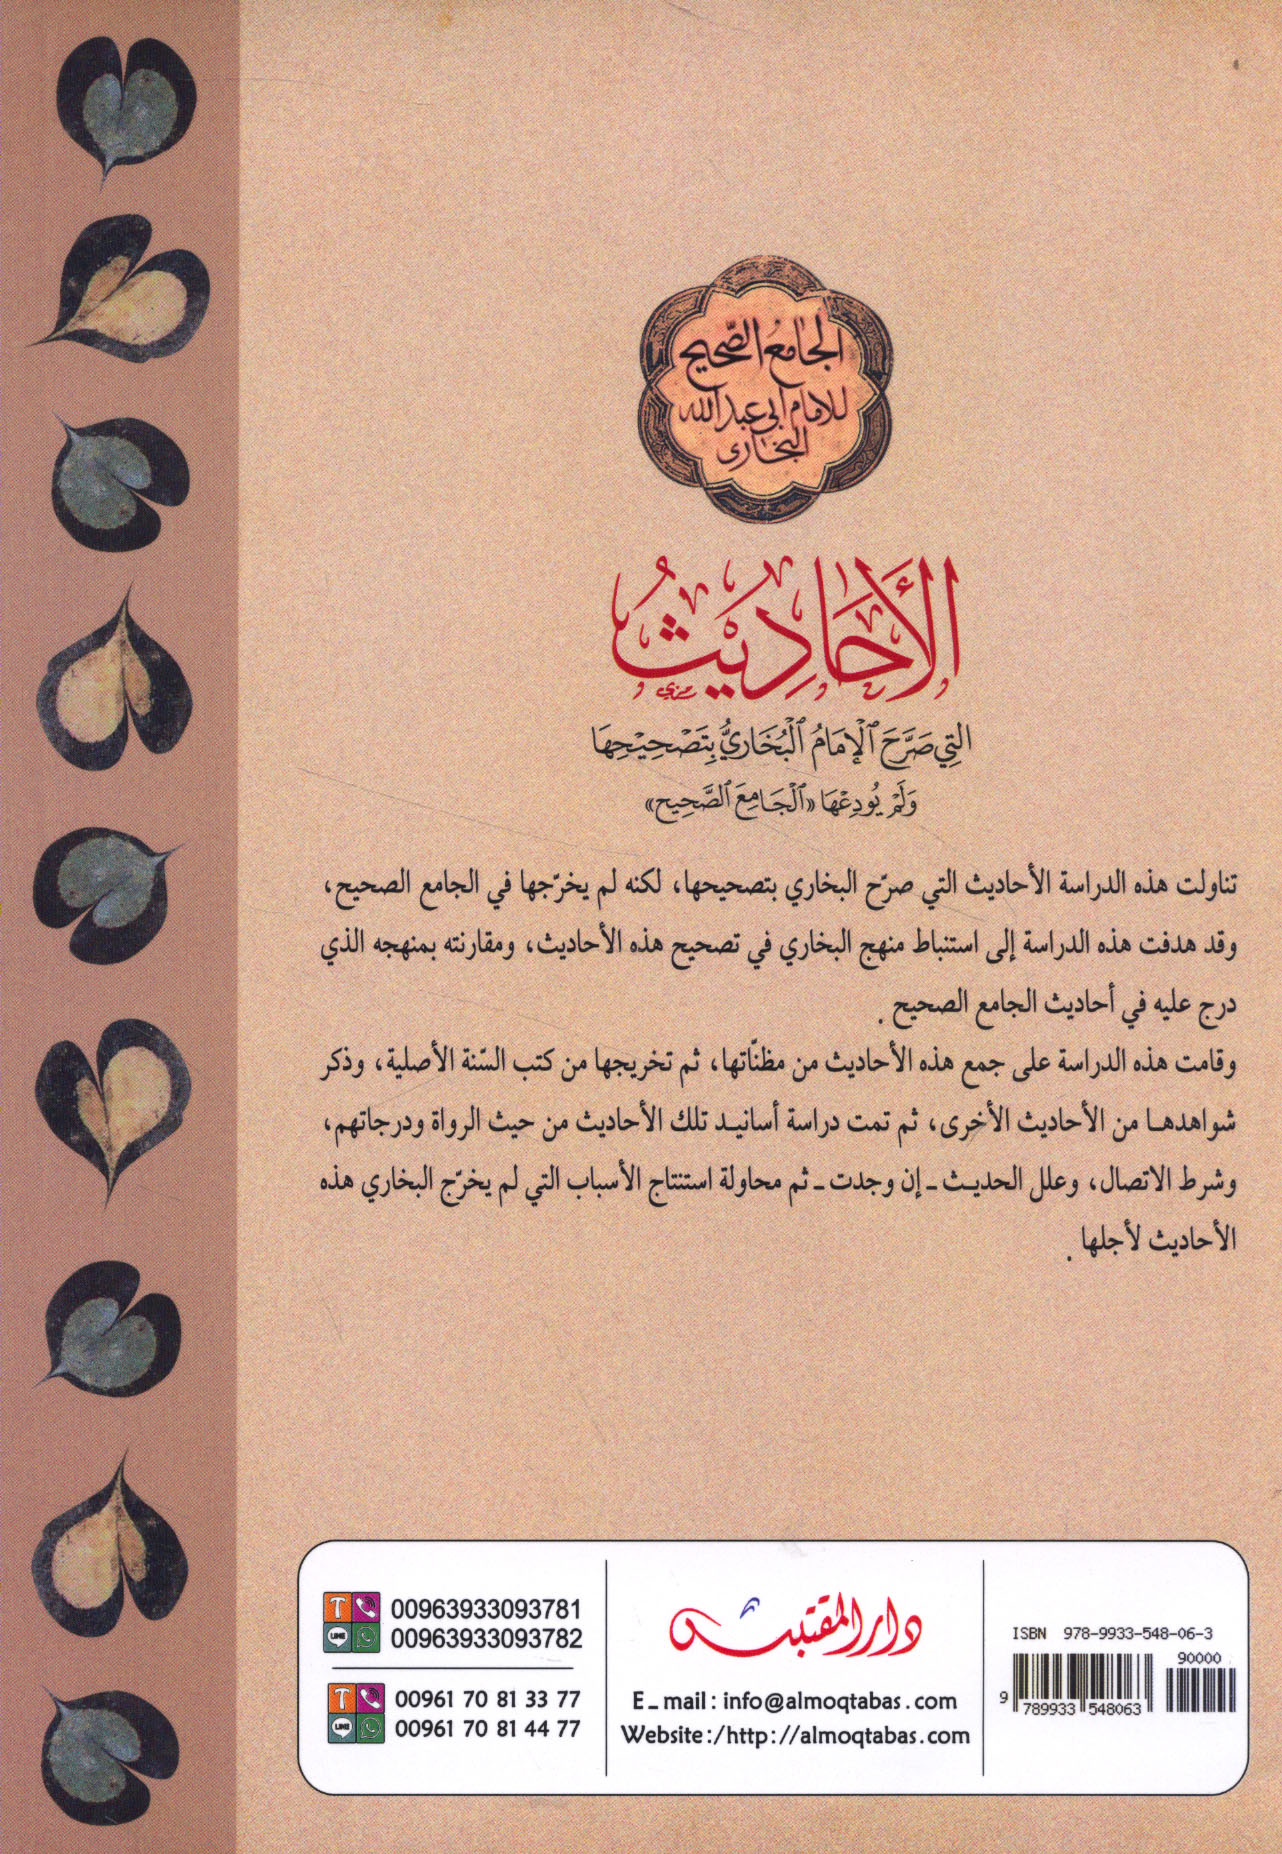 الجامع الصحيح
للإمام أبي عبد الله
البخاري
الأَحَادِيْثُ
التِي صَرَّحَ ٱلْإِمَامُ ٱلْبُخَارِيُّ بِتَصْحِيْحِهَا
وَلَمْ يُودِعْهَا «ٱلْجَامِعَ ٱلصَّحِيح»
تناولت هذه الدراسة الأحاديث التي صرّح البخاري بتصحيحها، لكنه لم يخرّجها في الجامع الصحيح،
وقد هدفت هذه الدراسة إلى استنباط منهج البخاري في تصحيح هذه الأحاديث، ومقارنته بمنهجه الذي
درج عليه في أحاديث الجامع الصحيح .
وقامت هذه الدراسة على جمع هذه الأحاديث من مظنّاتها، ثم تخريجها من كتب السّنة الأصلية، وذكر
شواهدها من الأحاديث الأخرى، ثم تمت دراسة أسانيد تلك الأحاديث من حيث الرواة ودرجاتهم،
وشرط الاتصال، وعلل الحديث ـ إن وجدت ـ ثم محاولة استنتاج الأسباب التي لم يخرّج البخاري هذه
الأحاديث لأجلها .
00963933093781
00963933093782
LINE
00961 70 81 33 77
00961 70 81 44 77
LINE
دار المقتبس
E_mail: info@almoqtabas.com
Website:/http://almoqtabas.com
ISBN 978-9933-548-06-3
90000
9 789933 548063